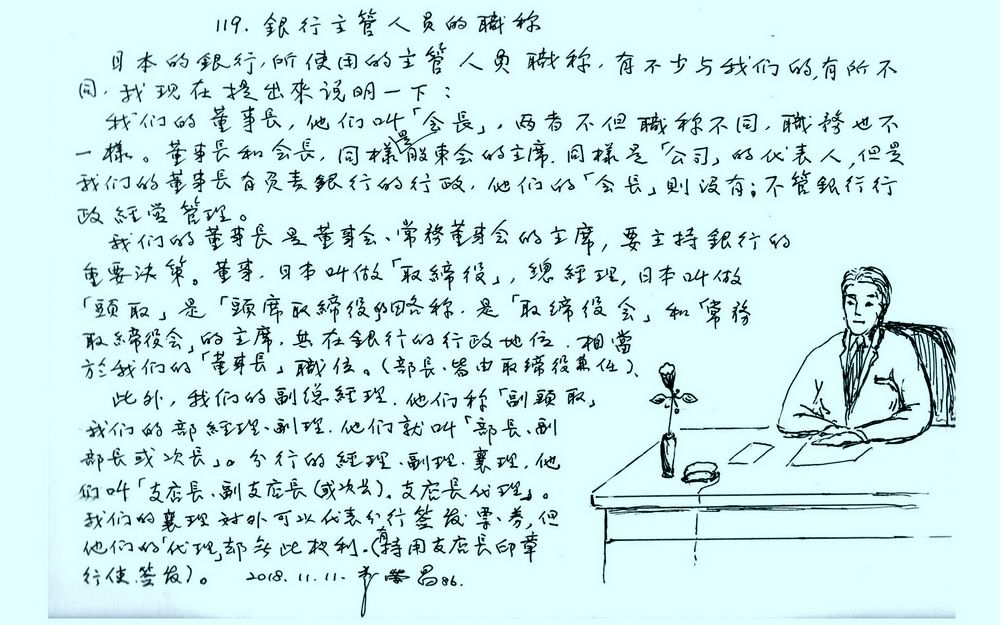 119. 銀行主管人员的職称
日本的銀行,所使用的主管人员職称,有不少与我们的,有所不
同,我现在提出來说明一下:
我们的董事長,他们叫「会長」,两者不但職称不同,職務也不
一樣。董事長和会長,同樣是股東会的主席,同樣是「公司」的代表人,但是
我们的董事長有负责銀行的行政,他们的「会長」則没有;不管銀行行
政經営管理。
我们的董事長是董事会、常務董事会的主席,要主持銀行的
重要決策。董事,日本叫做「取締役」,總經理,日本叫做
「頭取」是「頭席取締役」的略称,是「取締役会」和「常務
取締役会」的主席,其在銀行的行政地位,相當
於我们的「董事長」職位。(部長,皆由取締役兼任)、
此外,我们的副總經理,他们称「副頭取」
我们的部經理、副理,他们就叫「部長、副
部長或次長」。分行的經理、副理、襄理,他
们叫「支店長、副支店長(或次長)、支店長代理」。
我们的襄理对外可以代表分行签发票、券,但
他们的「代理」却無此权利。(有時用支店長印章
行使签发)。 2018.11.11. 昌86.